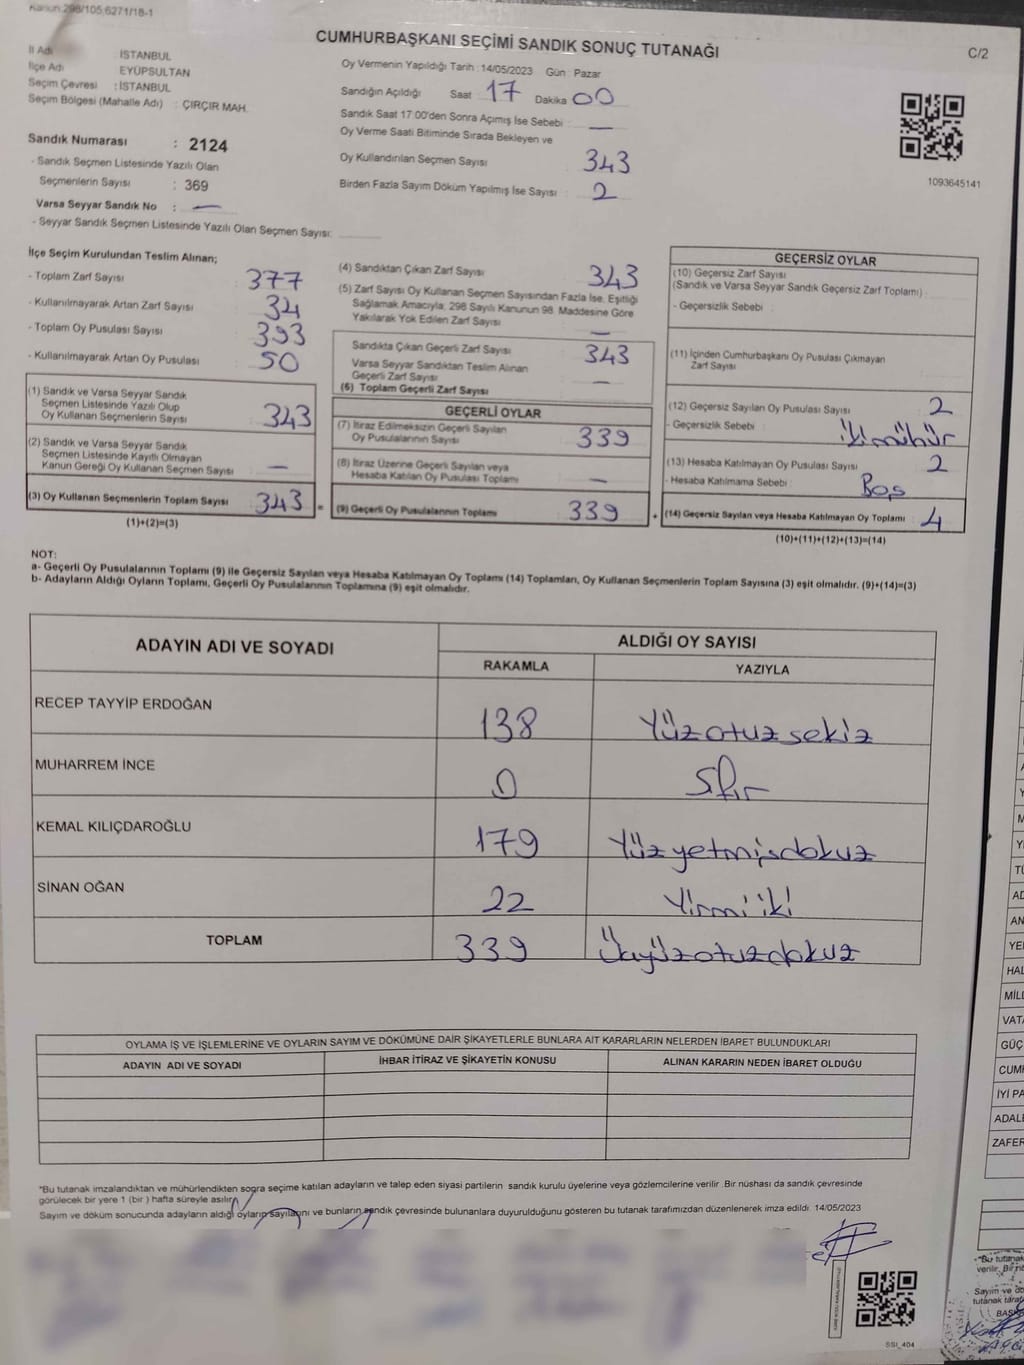 Kanun:298/105,6271/18-1
CUMHURBAŞKANI SEÇİMİ SANDIK SONUÇ TUTANAĞI
C/2
İl Adı : İSTANBUL
İlçe Adı : EYÜPSULTAN
Seçim Çevresi : İSTANBUL
Seçim Bölgesi (Mahalle Adı) : ÇIRÇIR MAH.
Sandık Numarası : 2124
- Sandık Seçmen Listesinde Yazılı Olan
Seçmenlerin Sayısı : 369
Varsa Seyyar Sandık No : —
- Seyyar Sandık Seçmen Listesinde Yazılı Olan Seçmen Sayısı:
Oy Vermenin Yapıldığı Tarih : 14/05/2023 Gün : Pazar
Sandığın Açıldığı Saat 17 Dakika 00
Sandık Saat 17:00'den Sonra Açımış İse Sebebi : —
Oy Verme Saati Bitiminde Sırada Bekleyen ve
Oy Kullandırılan Seçmen Sayısı 343
Birden Fazla Sayım Döküm Yapılmış İse Sayısı : 2
1093645141
İlçe Seçim Kurulundan Teslim Alınan;
- Toplam Zarf Sayısı 377
- Kullanılmayarak Artan Zarf Sayısı : 34
- Toplam Oy Pusulası Sayısı 393
- Kullanılmayarak Artan Oy Pusulası : 50
(1) Sandık ve Varsa Seyyar Sandık
Seçmen Listesinde Yazılı Olup
Oy Kullanan Seçmenlerin Sayısı 343
(2) Sandık ve Varsa Seyyar Sandık
Seçmen Listesinde Kayıtlı Olmayan
Kanun Gereği Oy Kullanan Seçmen Sayısı —
(3) Oy Kullanan Seçmenlerin Toplam Sayısı 343 =
(1)+(2)=(3)
(4) Sandıktan Çıkan Zarf Sayısı 343
(5) Zarf Sayısı Oy Kullanan Seçmen Sayısından Fazla İse, Eşitliği
Sağlamak Amacıyla, 298 Sayılı Kanunun 98. Maddesine Göre
Yakılarak Yok Edilen Zarf Sayısı —
Sandıkta Çıkan Geçerli Zarf Sayısı : 343
Varsa Seyyar Sandıktan Teslim Alınan
Geçerli Zarf Sayısı —
(6) Toplam Geçerli Zarf Sayısı
GEÇERLİ OYLAR
(7) İtiraz Edilmeksizin Geçerli Sayılan
Oy Pusulalarının Sayısı 339
(8) İtiraz Üzerine Geçerli Sayılan veya
Hesaba Katılan Oy Pusulası Toplamı —
(9) Geçerli Oy Pusulalarının Toplamı 339 +
GEÇERSİZ OYLAR
(10) Geçersiz Zarf Sayısı
(Sandık ve Varsa Seyyar Sandık Geçersiz Zarf Toplamı) :
- Geçersizlik Sebebi :
(11) İçinden Cumhurbaşkanı Oy Pusulası Çıkmayan
Zarf Sayısı
(12) Geçersiz Sayılan Oy Pusulası Sayısı 2
- Geçersizlik Sebebi : İkimühür
(13) Hesaba Katılmayan Oy Pusulası Sayısı 2
- Hesaba Katılmama Sebebi : Boş
(14) Geçersiz Sayılan veya Hesaba Katılmayan Oy Toplamı : 4
(10)+(11)+(12)+(13)=(14)
NOT:
a- Geçerli Oy Pusulalarının Toplamı (9) ile Geçersiz Sayılan veya Hesaba Katılmayan Oy Toplamı (14) Toplamları, Oy Kullanan Seçmenlerin Toplam Sayısına (3) eşit olmalıdır. (9)+(14)=(3)
b- Adayların Aldığı Oyların Toplamı, Geçerli Oy Pusulalarının Toplamına (9) eşit olmalıdır.
ADAYIN ADI VE SOYADI
ALDIĞI OY SAYISI
RAKAMLA YAZIYLA
RECEP TAYYİP ERDOĞAN 138 Yüzotuzsekiz
MUHARREM İNCE 0 Sıfır
KEMAL KILIÇDAROĞLU 179 Yüzyetmişdokuz
SİNAN OĞAN 22 Yirmiiki
TOPLAM 339 Üçyüzotuzdokuz
OYLAMA İŞ VE İŞLEMLERİNE VE OYLARIN SAYIM VE DÖKÜMÜNE DAİR ŞİKAYETLERLE BUNLARA AİT KARARLARIN NELERDEN İBARET BULUNDUKLARI
ADAYIN ADI VE SOYADI İHBAR İTİRAZ VE ŞİKAYETİN KONUSU ALINAN KARARIN NEDEN İBARET OLDUĞU
*Bu tutanak imzalandıktan ve mühürlendikten sogra seçime katılan adayların ve talep eden siyasi partilerin sandık kurulu üyelerine veya gözlemcilerine verilir .Bir nüshası da sandık çevresinde
görülecek bir yere 1 (bir ) hafta süreyle asılır.
Sayım ve döküm sonucunda adayların aldığı oyların sayılarını ve bunların sandık çevresinde bulunanlara duyurulduğunu gösteren bu tutanak tarafımızdan düzenlenerek imza edildi. 14/05/2023
SSI_404
YE
HAL
MİLL
VATA
GÜÇ
CUMH
İYİ PA
ADALE
ZAFER
*Bu tutanak
verilir. Bir n
Sayım ve dö
tutanak taraf
BAŞK